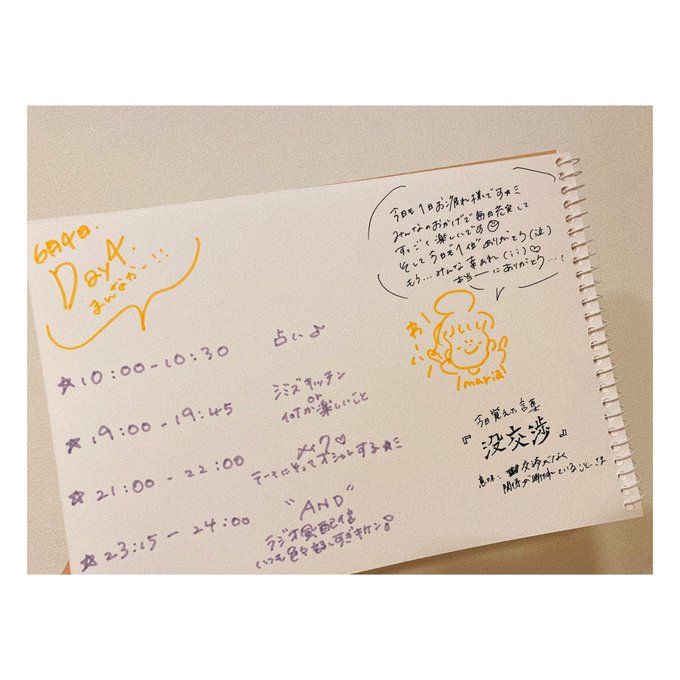 6月4日.
Day4.
まんなかー!!
今日も1日お疲れ様です☆ミ
みんなのおかげで毎日充実して
すっごく楽しいです☺
そして今日も1位ありがとう(泣)
もう…みんな幸あれ(;;)♡
本当ーにありがとう…!
おーい!
maria
☆10:00-10:30 占い♪
☆19:00-19:45 シミズキッチン
or
何か楽しいこと
☆21:00-22:00 メイク♡
テーマにそってオシャレする☆ミ
☆23:15-24:00 "AND"
ラジオ風配信
いつも色々話しすぎキケン!
今日覚えた言葉
『没交渉』
意味: 交渉がなく
関係が断絶していること.